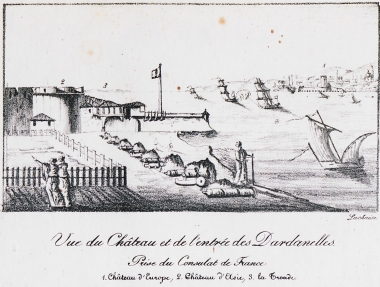 2 3
Vue du Château et de l'entrée des Dardanelles
Prise du Consulat de France
1. Château d'Europe, 2. Château d'Asie, 3. la Troade